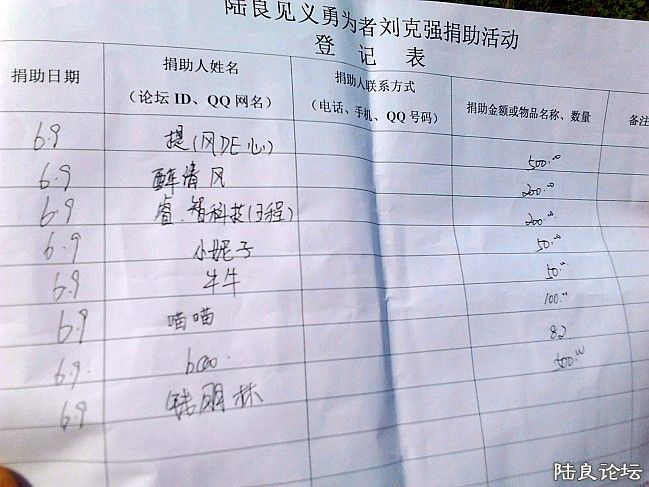 陆良见义勇为者刘克强捐助活动
登 记 表
捐助日期 捐助人姓名 捐助人联系方式 捐助金额或物品名称、数量 备注
（论坛 ID、QQ 网名） （电话、手机、QQ 号码）
6.9 提(风DE心) 500.00
6.9 醉清风 200.00
6.9 睿.智科技(工程) 200.00
6.9 小妮子 50.00
6.9 牛牛 50.00
6.9 喵喵 100.00
6.9 82
6.9 钱明林 500.00
陆良论坛